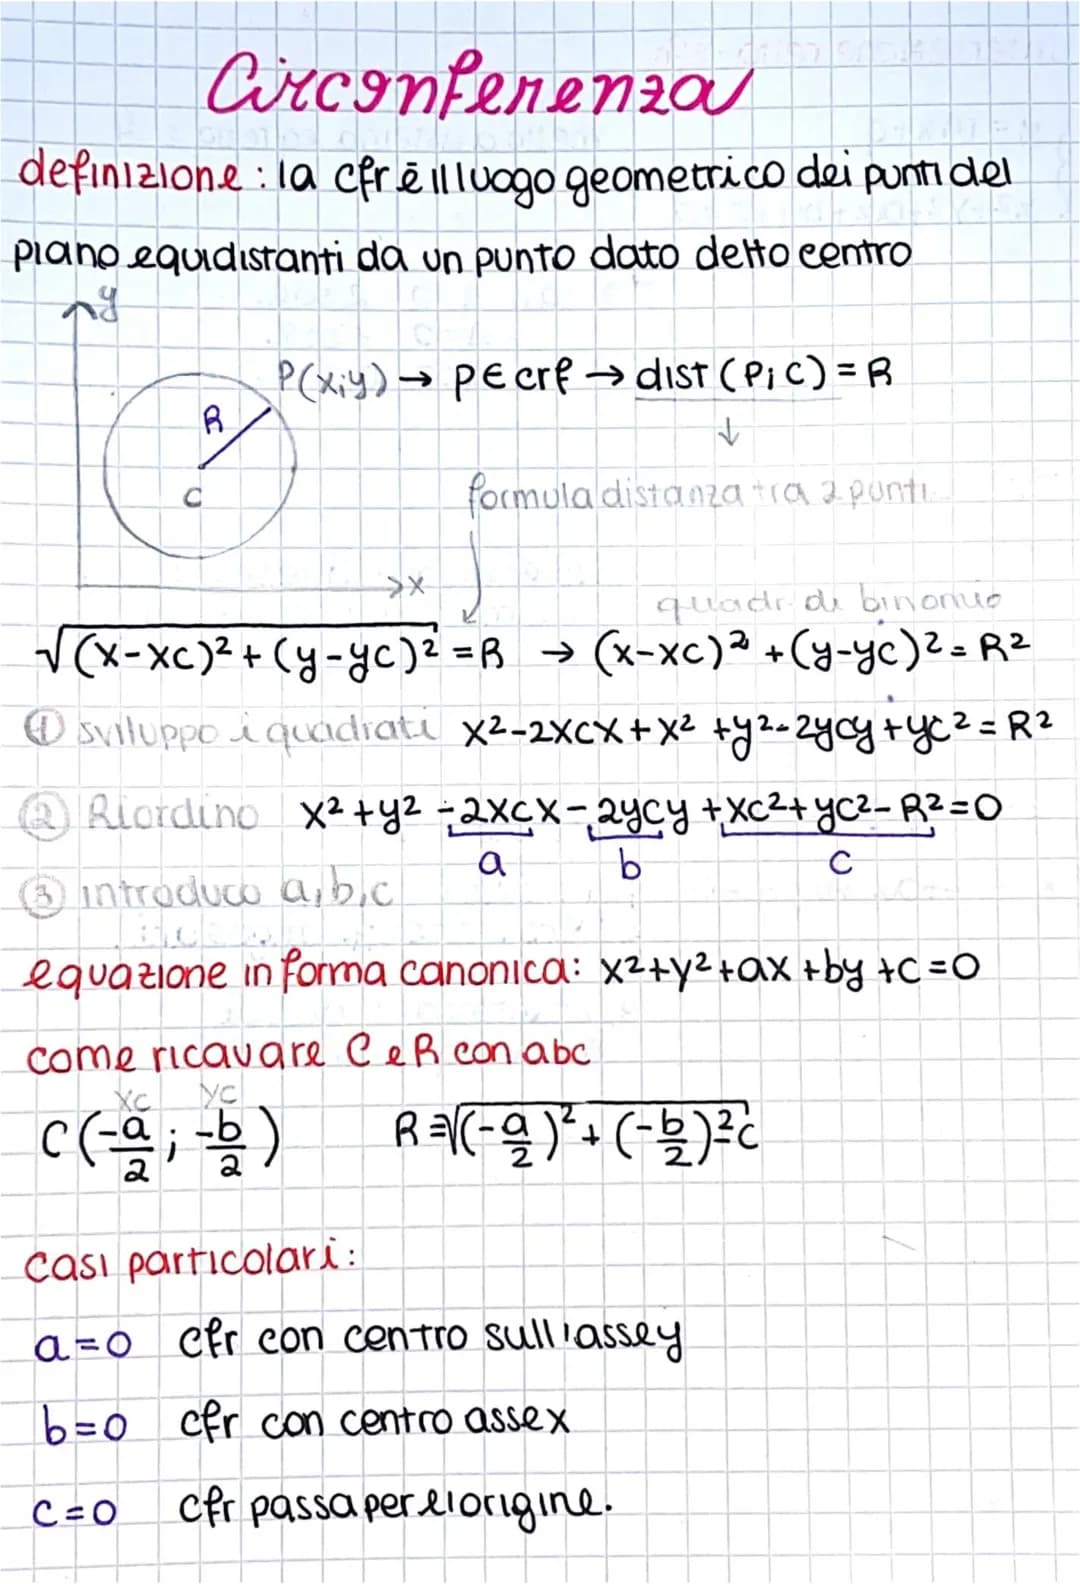 Circonferenza
definizione: la cfr è il luogo geometrico dei punti del
piano equidistanti da un punto dato detto centro
y
P(x;y) → P∈crf → dist (P;C) = R
R
↓
C
formula distanza tra 2 punti
>x
quadr. di binomio
√(x-xc)²+(y-yc)² = R → (x-xc)² +(y-yc)² = R²
① sviluppo i quadrati x²-2xcx+x² +y²-2ycy+yc² = R²
② Riordino x²+y² -2xcx-2ycy +xc²+yc²-R²=0
a b c
③ introduco a,b,c
equazione in forma canonica: x²+y²+ax+by+c=0
come ricavare C e R con abc
xc yc
C(-a/2 ; -b/2) R=√(-a/2)²+(-b/2)²-c
casi particolari:
a=0 cfr con centro sull'assey
b=0 cfr con centro assex
c=0 cfr passa per l'origine.